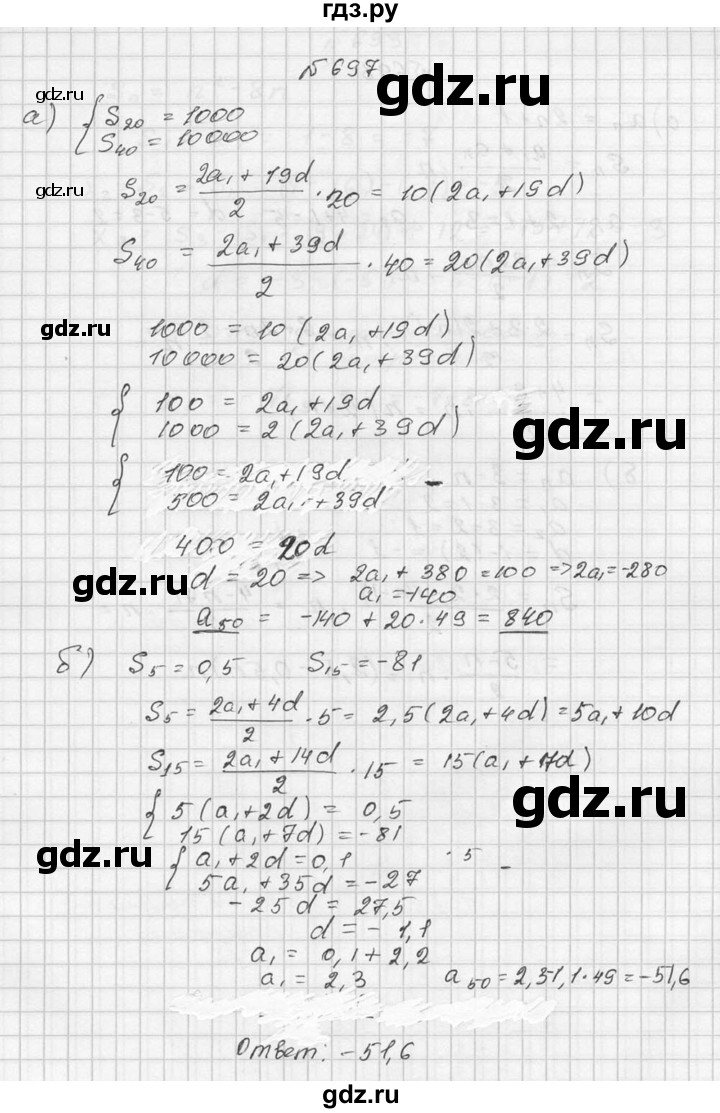 гдз.ру
№ 697
gdz.ru
а) { S₂₀ = 1000
S₄₀ = 10000
gdz.ru
S₂₀ = (2a₁ + 19d)/2 · 20 = 10(2a₁ + 19d)
S₄₀ = (2a₁ + 39d)/2 · 40 = 20(2a₁ + 39d)
gdz.ru
1000 = 10(2a₁ + 19d)
10000 = 20(2a₁ + 39d)
{ 100 = 2a₁ + 19d
1000 = 2(2a₁ + 39d)
gdz.ru
{ 100 = 2a₁ + 19d
500 = 2a₁ + 39d −
400 = 20d
gdz.ru
d = 20 => 2a₁ + 380 = 100 => 2a₁ = -280
a₁ = -140
a₅₀ = -140 + 20·49 = 840
б) S₅ = 0,5 S₁₅ = -81
S₅ = (2a₁ + 4d)/2 · 5 = 2,5(2a₁ + 4d) = 5a₁ + 10d
S₁₅ = (2a₁ + 14d)/2 · 15 = 15(a₁ + 7d)
gdz.ru
{ 5(a₁ + 2d) = 0,5
15(a₁ + 7d) = -81
gdz.ru
{ a₁ + 2d = 0,1 · 5
5a₁ + 35d = -27 −
- 25d = 27,5
d = - 1,1
a₁ = 0,1 + 2,2
a₁ = 2,3 a₅₀ = 2,31,1·49 = -51,6
gdz.ru
Ответ: -51,6
gdz.ru